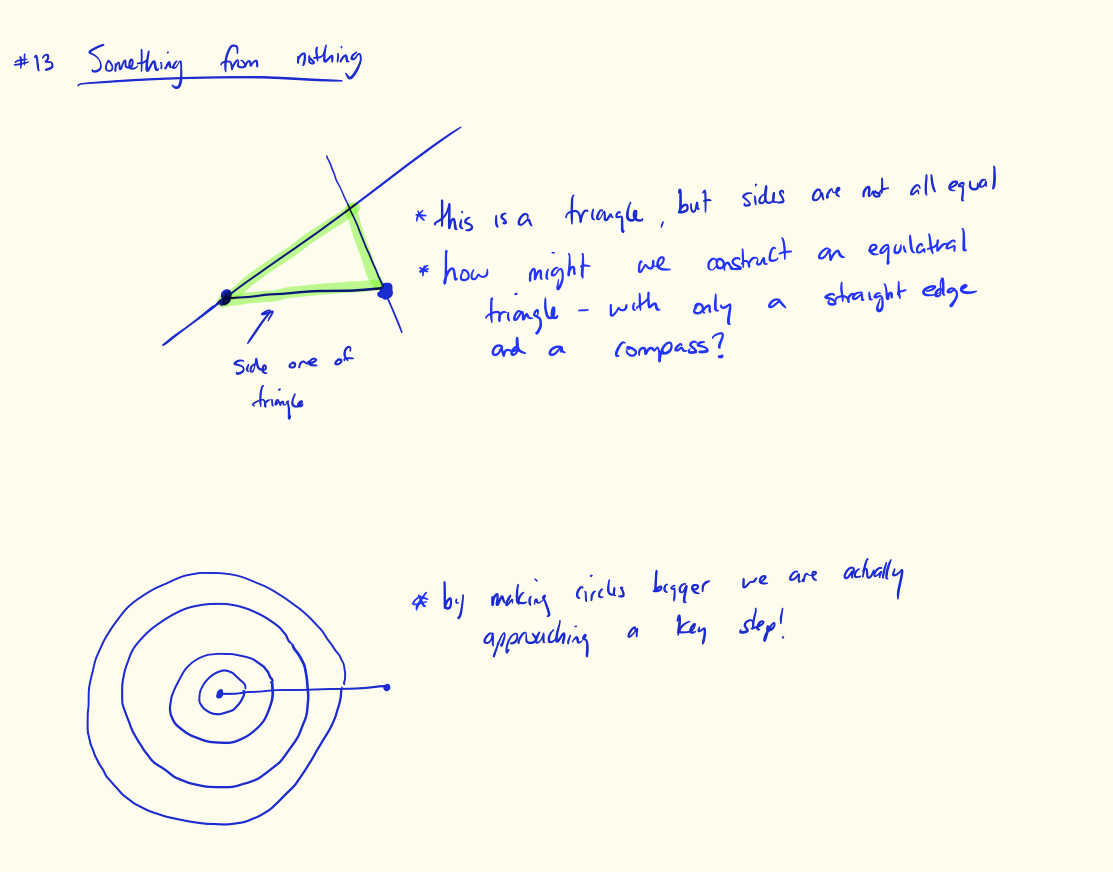 #13 Something from nothing
* this is a triangle, but sides are not all equal
* how might we construct an equilatral
triangle - with only a straight edge
and a compass?
side one of
triangle
* by making circles bigger we are actually
approaching a key step!